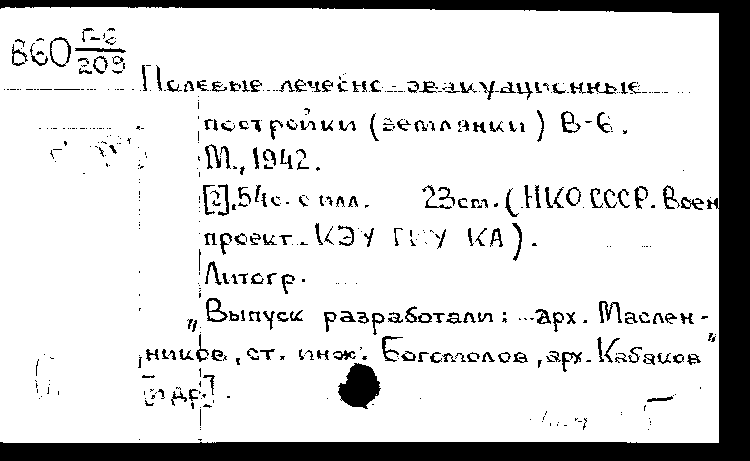 В60 Г-6/209
Полевые лечебно-эвакуационные
постройки (землянки) В-6.
М., 1942.
[2], 54с. с илл. 23см. (НКО СССР. Воен
проект. КЭУ КА).
Литогр.
„Выпуск разработали: арх. Маслен-
ников, ст. инж. Богомолов, арх. Кабаков"
[и др.].